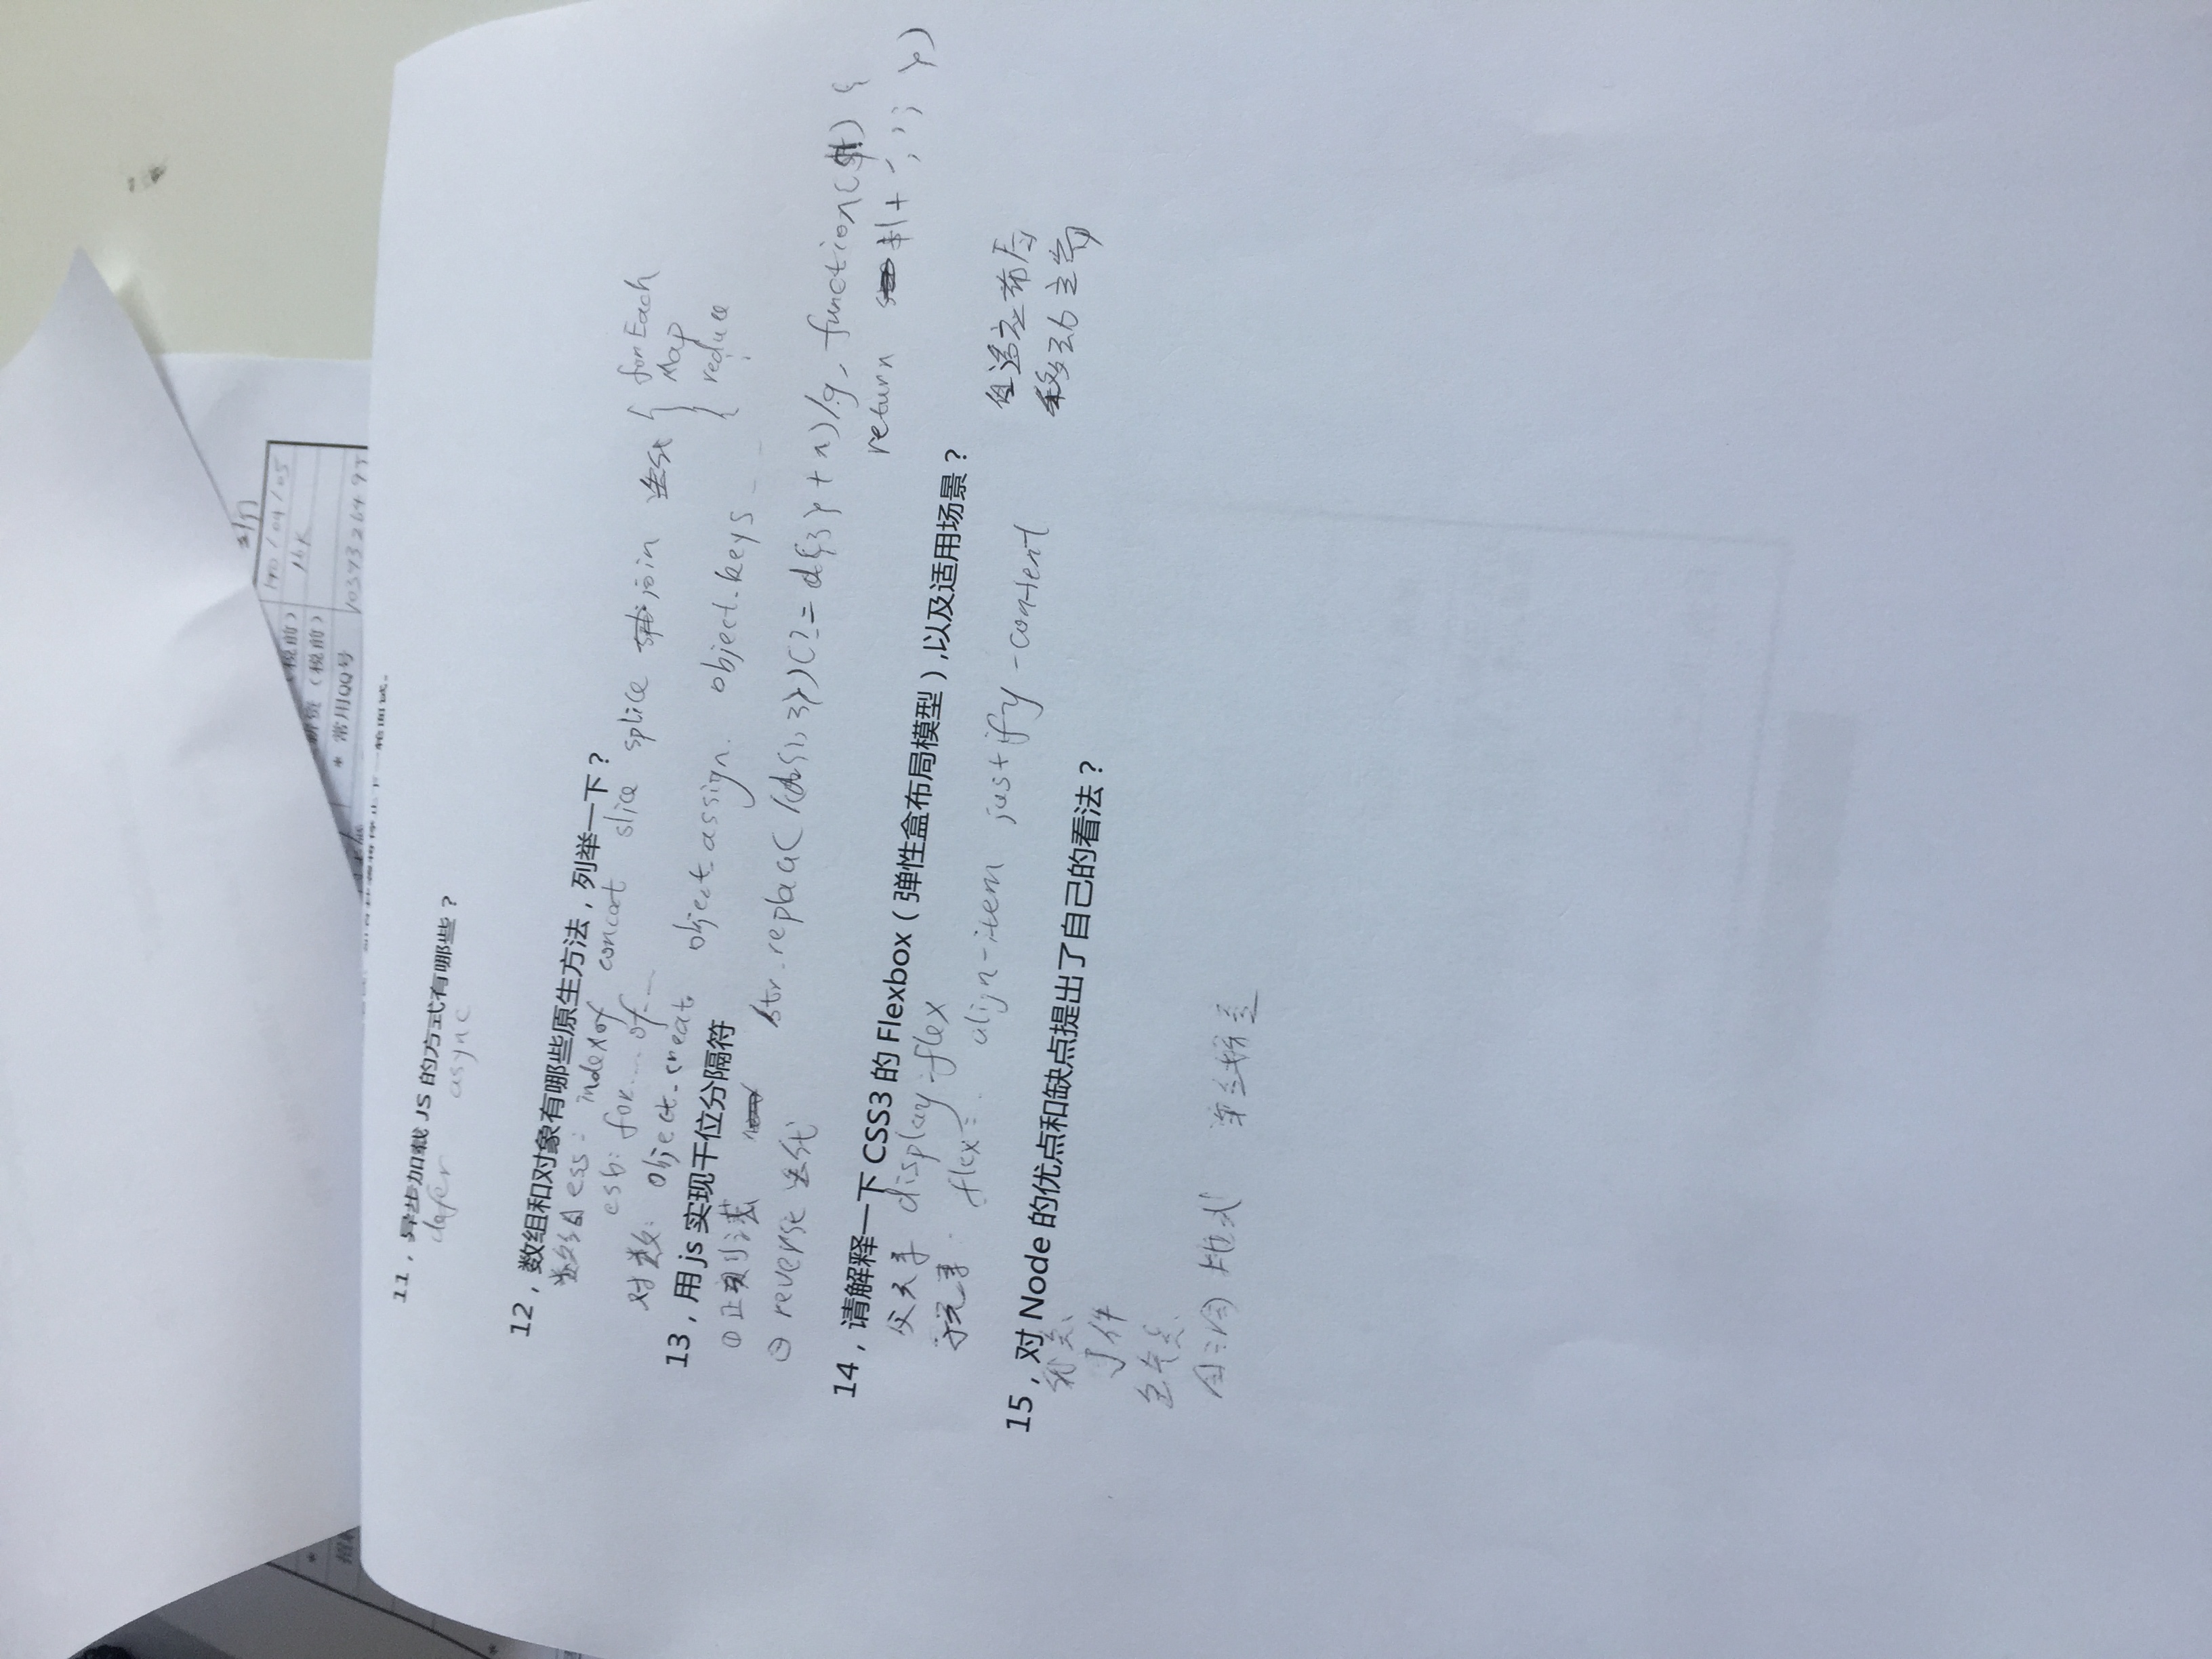 (税前) 16K
薪资(税前)
* 常用QQ号
下一轮面试。
11，异步加载 JS 的方式有哪些？
defer async
12，数组和对象有哪些原生方法，列举一下？
数组 es5: indexof concat slice splice join 迭代 { forEach
Map
reduce
es6: for... of...
对象: object.create object.assign. object.keys ...
13，用 js 实现千位分隔符
①正则
str.replace( /(d{1,3})(?= d{3}+
function($1) {
return $1 + ','; })
② reverse 迭代
14，请解释一下 CSS3 的 Flexbox（弹性盒布局模型）,以及适用场景？
父元素 display:flex
子元素: flex: align-item justify-content
自适应布局
移动
15，对 Node 的优点和缺点提出了自己的看法？
优点
事件
缺点